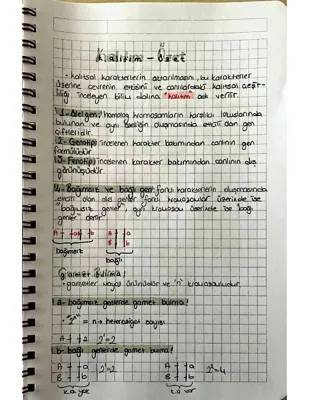 Kalıtım - Özet
• kalıtsal karakterlerin aktarılmasını, bu karakterler
üzerine çevrenin etkisini ve canlılardaki kalıtsal çeşit-
liliği inceleyen bilim dalına "kalıtım" adı verilir.
1- Alelgen, homolog kromozomların karşılıklı lokuslarında
bulunan ve aynı özelliğin oluşmasında etkili olan gen
çiftleridir.
2- Genotip, incelenen karakter bakımından canlının gen
formülüdür
3- Fenotip, incelenen karakter bakımından canlının dış
görünüşüdür
4- Bağımsız ve bağlı gen, farklı karakterlerin oluşmasında
etkili olan alel genler farklı kromozomlar üzerinde ise
"bağımsız genler", aynı kromozom üzerinde ise "bağlı
genler" denir
A a b
bağımsız
A a
B b
bağlı
Gamet Bulma!
• gametler mayoz ürünüdür ve "n" kromozomludur.
a- bağımsız genlerde gamet bulma!
• 2ⁿ = n → heterozigot sayısı
A a 2¹=2
B b
b- bağlı genlerde gamet bulma!
A a 2¹=2 A a 2²=4
B b B b
k.o yok k.o var